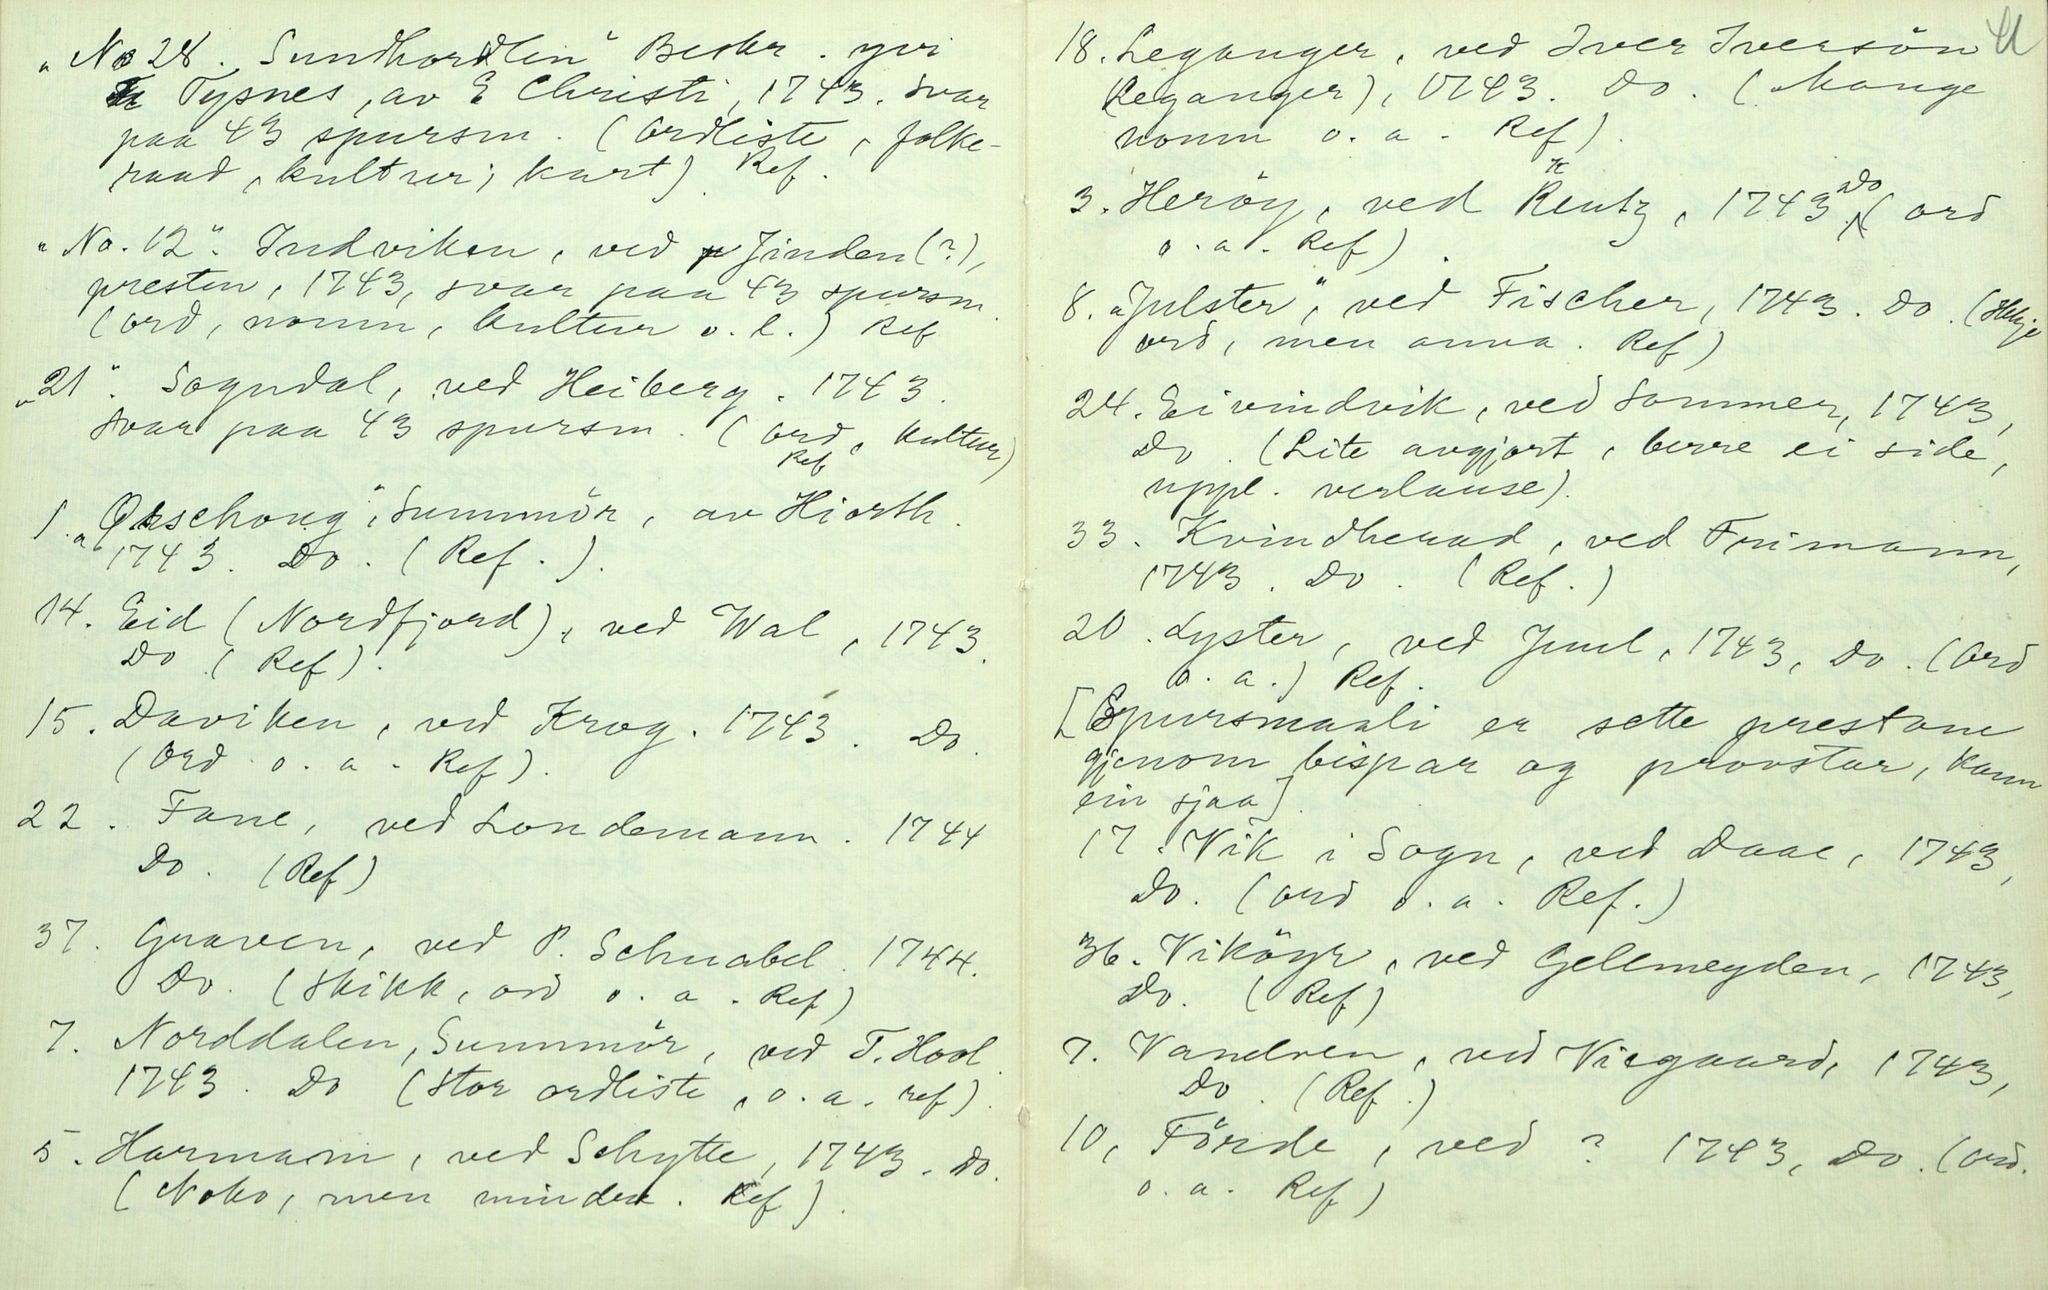 „No 28. Sundhordlin" Beskr. yvi
Tysnes, av E Christi, 1743. Svar
paa 43 spursm. (Ordliste, folke-
raad, kultur; kart). Ref.
„No. 12". Indviken, ved Jinden (?),
presten, 1743, svar paa 43 spursm.
(ord, nomn, kultur o. l.) Ref
„21". Sogndal, ved Heiberg. 1743.
Svar paa 43 spursm. (ord, kultur)
Ref
1. „Ørschoug", Sunnmör, av Hiorth.
1743. Do. (Ref.).
14. Eid (Nordfjord), ved Wal, 1743.
Do. (Ref).
15. Daviken, ved Krog. 1743. Do.
(Ord o. a. Ref).
22. Fane, ved Londemann. 1744
Do. (Ref)
37. Graven, ved P. Schnabel. 1744.
Do. (Skikk, ord o. a. Ref)
7. Norddalen, Sunnmör, ved T. Hool.
1743. Do (Stor ordliste, o. a. ref).
5. Harmam, ved Schytte, 1743. Do.
(Noko, men mindre. Ref).
18. Leganger, ved Iver Iversön
(Leganger), 1743. Do. (Mange
nomn o. a. Ref).
3. Heröy, ved Rentz, 1743, Do (ord
o. a. Ref).
8. „Julster", ved Fischer, 1743. Do. (Ikkje
ord, men anna. Ref)
24. Eivindvik, ved Sommer, 1743,
Do. (Lite avgjort, berre ei side,
uppl. verlause).
33. Kvindherad, ved Frimann,
1743. Do. (Ref.)
20. Lyster, ved Juul, 1743, Do. (Ord
o. a.) Ref.
[Spursmaali er sette prestane
gjenom bispar og provstar, kann
ein sjaa].
17. Vik i Sogn, ved Daae, 1743,
Do. (ord o. a. Ref.)
36. Viköyr, ved Gelmeyden, 1743,
Do. (Ref)
7. Vandven, ved Viegaard, 1743,
Do. (Ref.)
10, Förde, ved ? 1743, Do. (ord.
o. a. Ref)